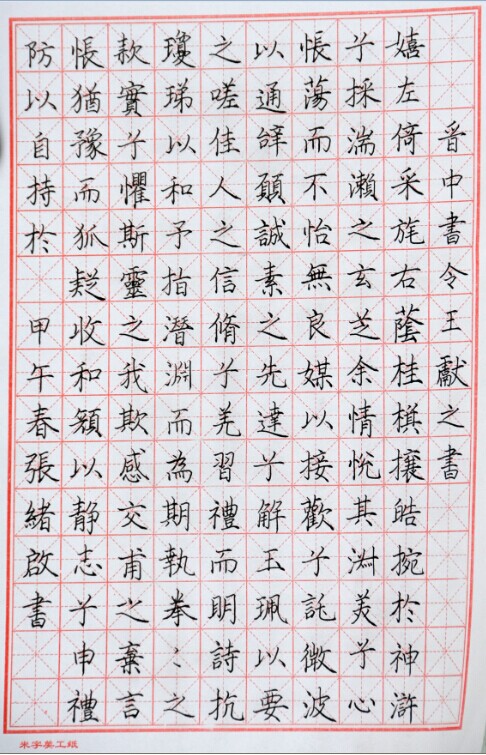 晋中書令王獻之書
嬉左倚采旄右蔭桂棋攘皓捥於神滸
兮採湍瀬之玄芝余情悅其淑美兮心
悵蕩而不怡無良媒以接歡兮託微波
以通辭願誠素之先達兮解玉珮以要
之嗟佳人之信脩兮羌習禮而明詩抗
瓊珶以和予指潛淵而為期執拳〻之
款實兮懼斯靈之我欺感交甫之棄言
悵猶豫而狐疑收和顏以靜志兮申禮
防以自持於 甲午春張緒啟書
米字美工紙